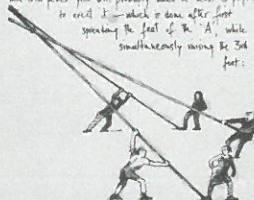 to erect it — which is done after first
spreading the feet of the 'A', while
simultaneously raising the 3rd
foot :